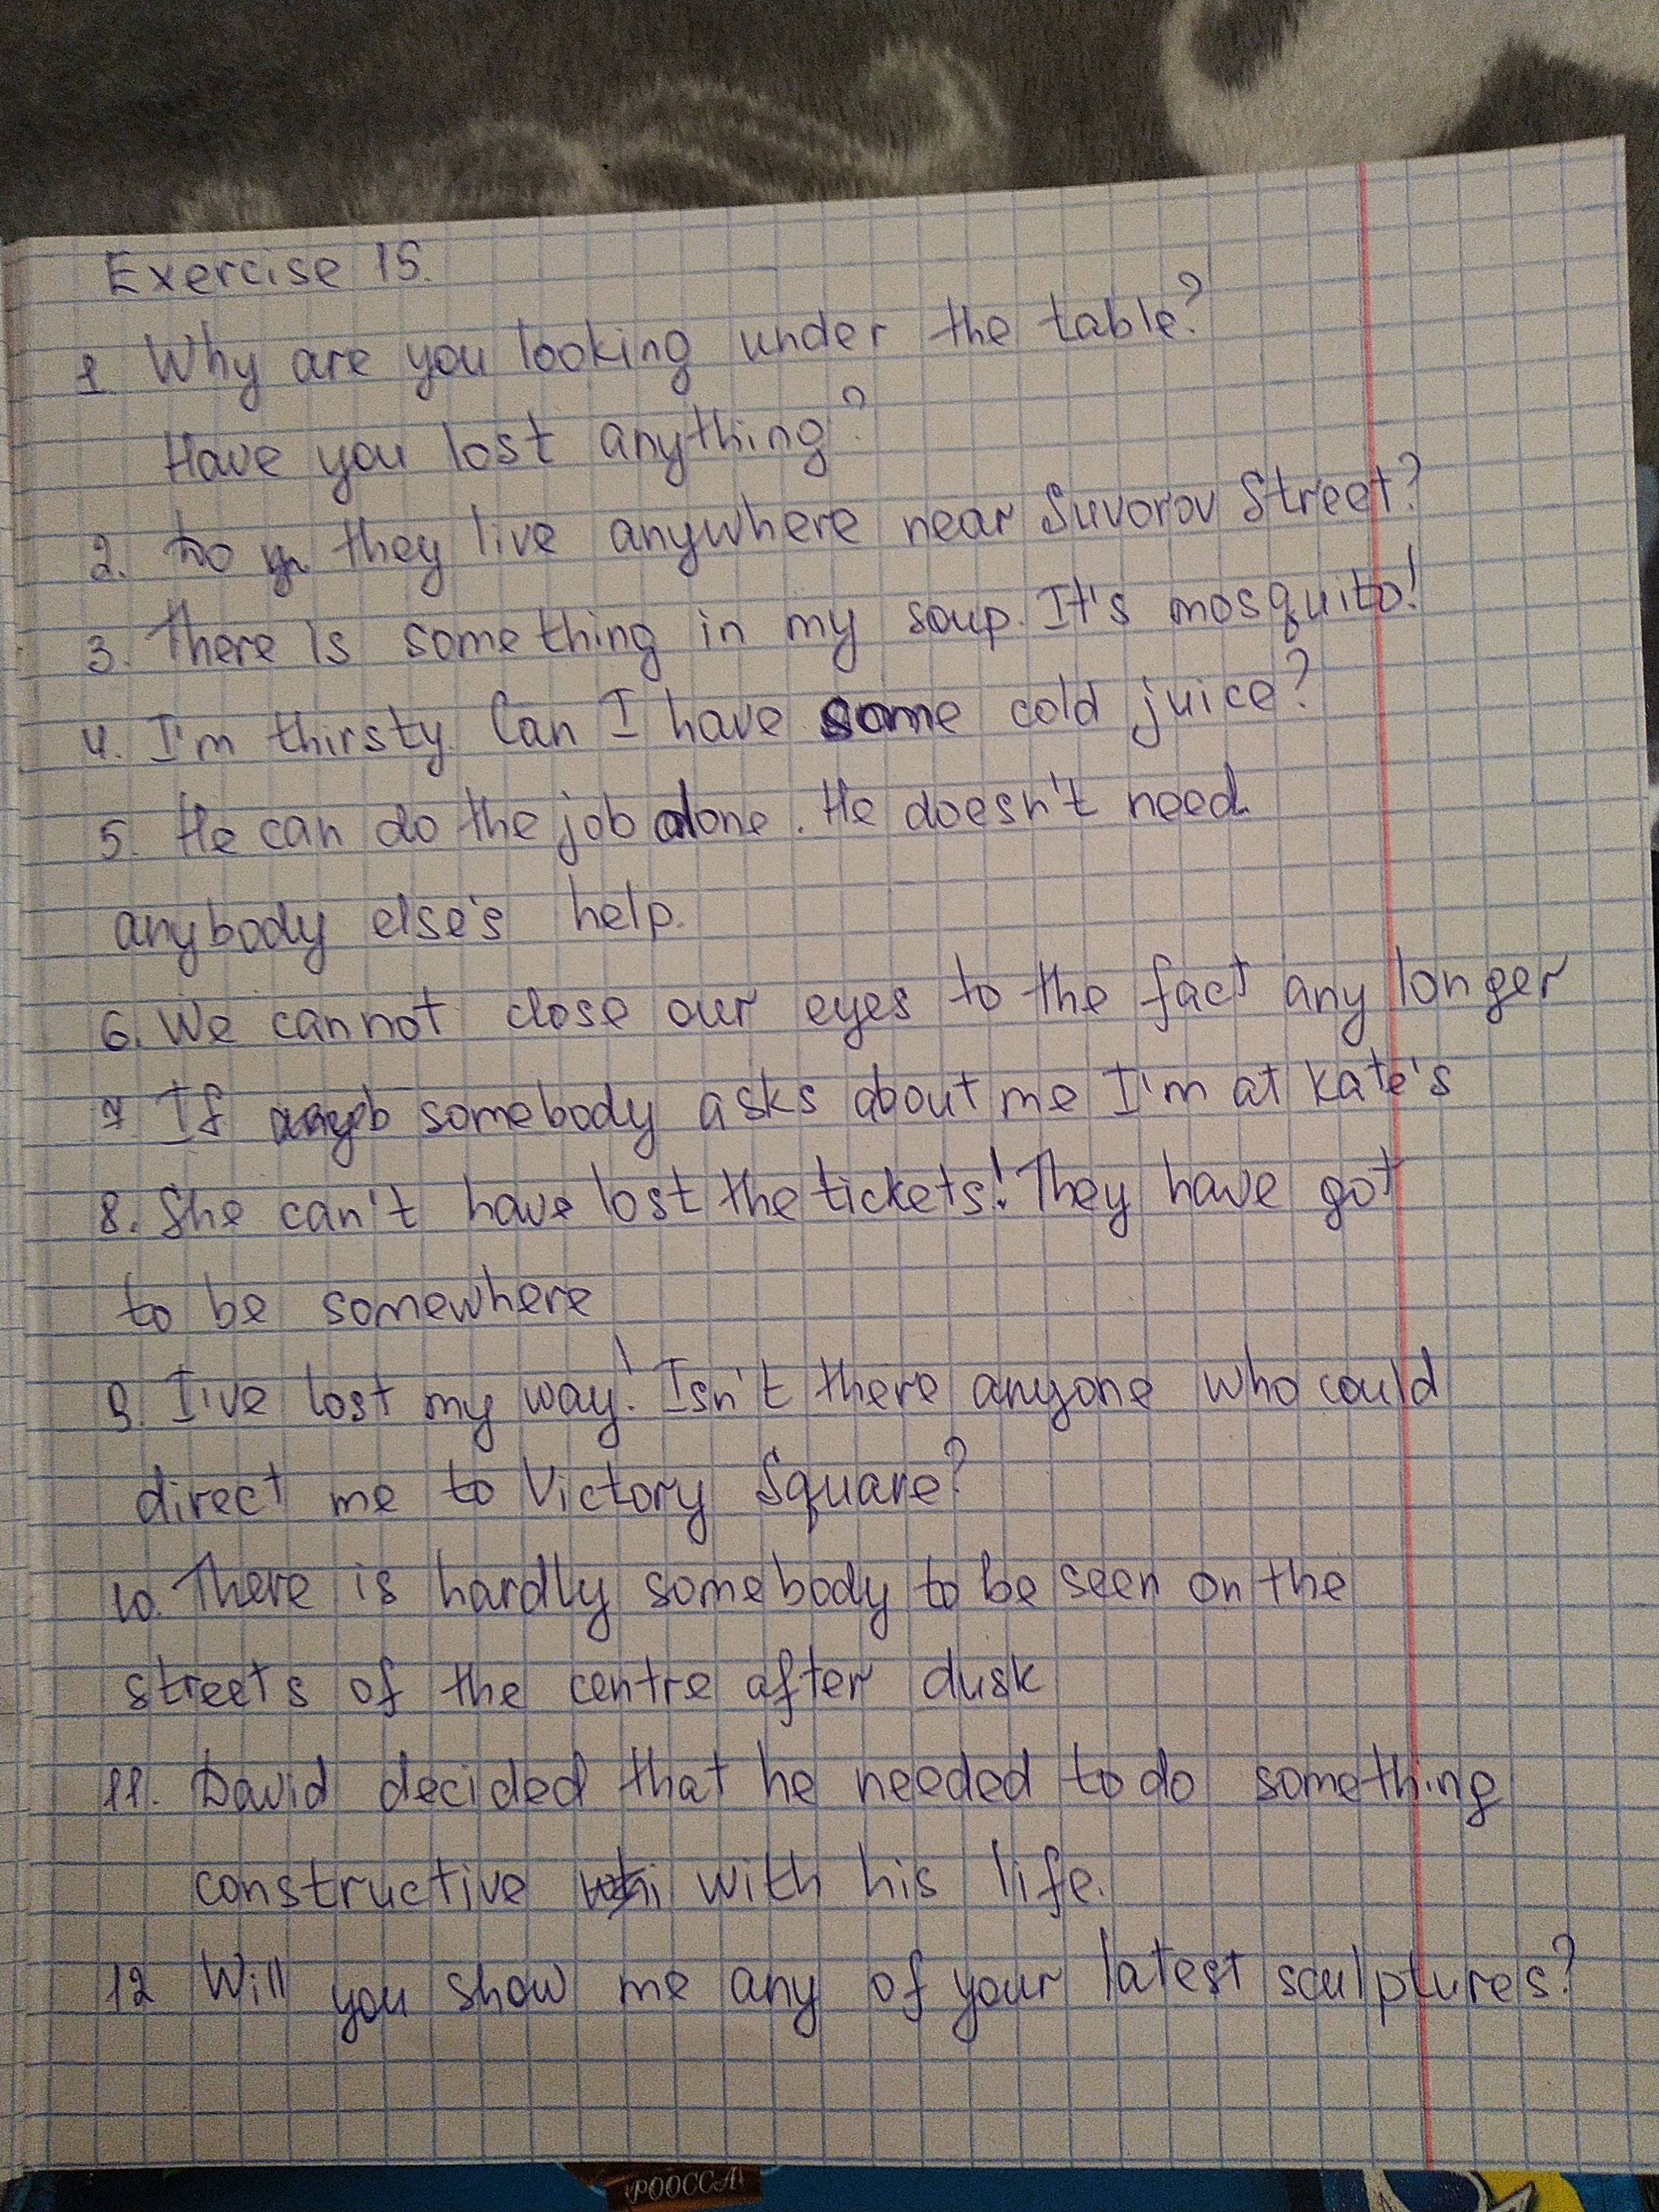 Exercise 15.
1 Why are you looking under the table?
Have you lost anything?
2. Do they live anywhere near Suvorov Street?
3. There is something in my soup. It's mosquito!
4. I'm thirsty. Can I have some cold juice?
5. He can do the job alone. He doesn't need
anybody else's help.
6. We cannot close our eyes to the fact any longer
7. If somebody asks about me I'm at Kate's
8. She can't have lost the tickets! They have got
to be somewhere
9. I've lost my way! Isn't there anyone who could
direct me to Victory Square?
10. There is hardly somebody to be seen on the
streets of the centre after dusk
11. David decided that he needed to do something
constructive with his life.
12 Will you show me any of your latest sculptures?
РООССА